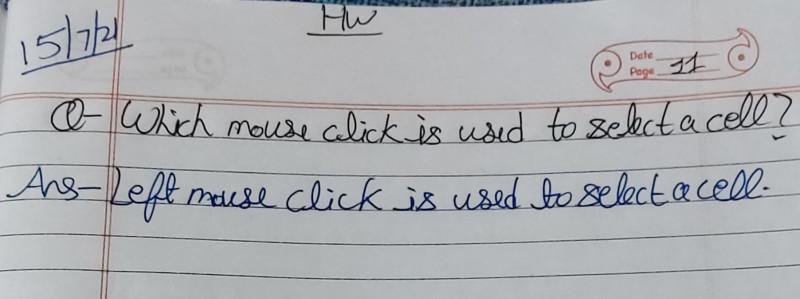 HW
15/7/21
Date
Page 11
Q- Which mouse click is used to select a cell?
Ans- Left mouse click is used to select a cell.